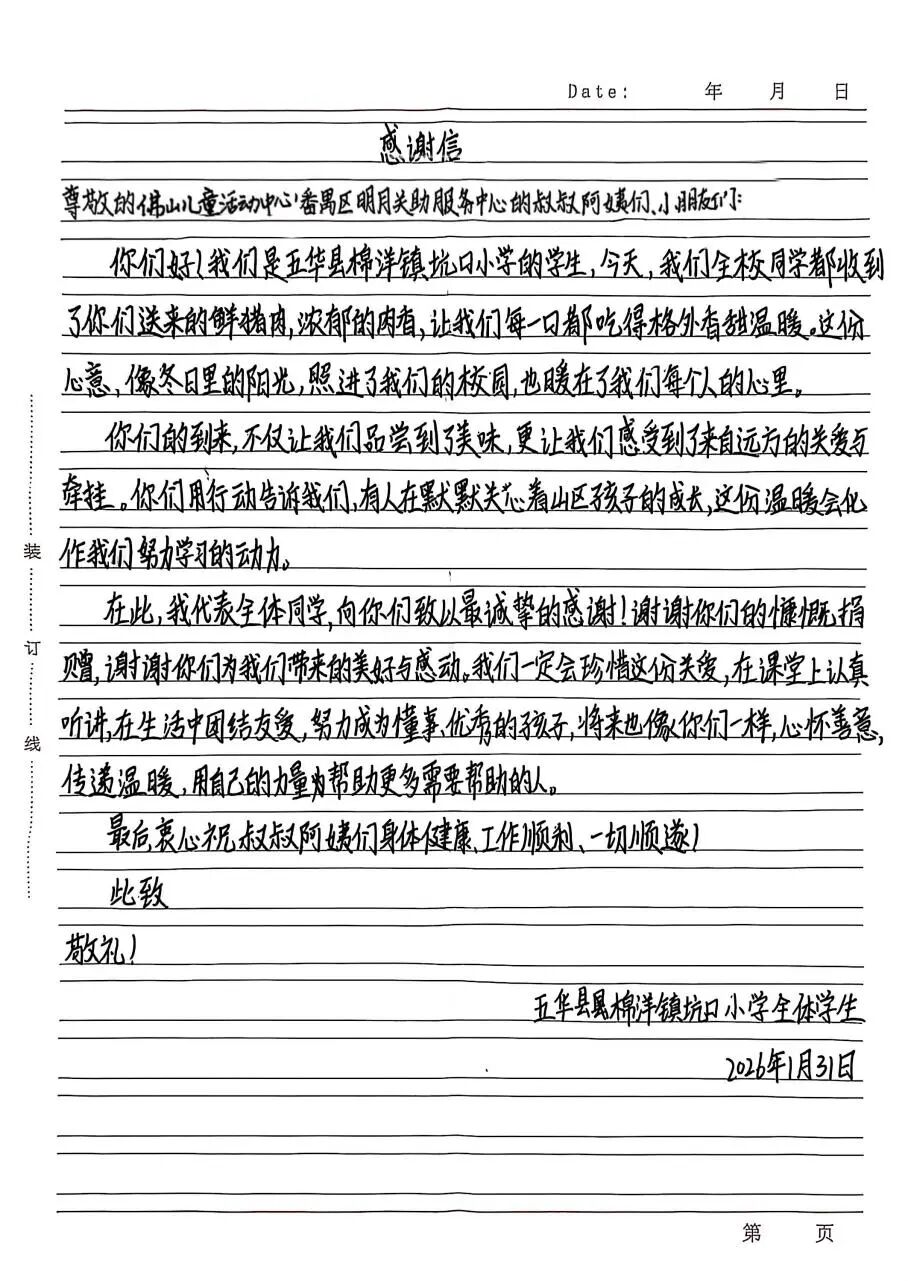 Date: 年 月 日
感谢信
尊敬的佛山儿童活动中心、番禺区明月关助服务中心的叔叔阿姨们、小朋友们:
你们好!我们是五华县棉洋镇坑口小学的学生,今天,我们全校同学都收到
了你们送来的鲜猪肉,浓郁的肉香,让我们每一口都吃得格外香甜温暖。这份
心意,像冬日里的阳光,照进了我们的校园,也暖在了我们每个人的心里。
你们的到来,不仅让我们品尝到了美味,更让我们感受到了来自远方的关爱与
牵挂。你们用行动告诉我们,有人在默默关心着山区孩子的成长,这份温暖会化
作我们努力学习的动力。
在此,我代表全体同学,向你们致以最诚挚的感谢!谢谢你们的慷慨捐
赠,谢谢你们为我们带来的美好与感动。我们一定会珍惜这份关爱,在课堂上认真
听讲,在生活中团结友爱,努力成为懂事、优秀的孩子,将来也像你们一样,心怀善意,
传递温暖,用自己的力量为帮助更多需要帮助的人。
最后,衷心祝叔叔阿姨们身体健康、工作顺利、一切顺遂!
此致
敬礼!
五华县县棉洋镇坑口小学全体学生
2026年1月31日
装订线
第 页